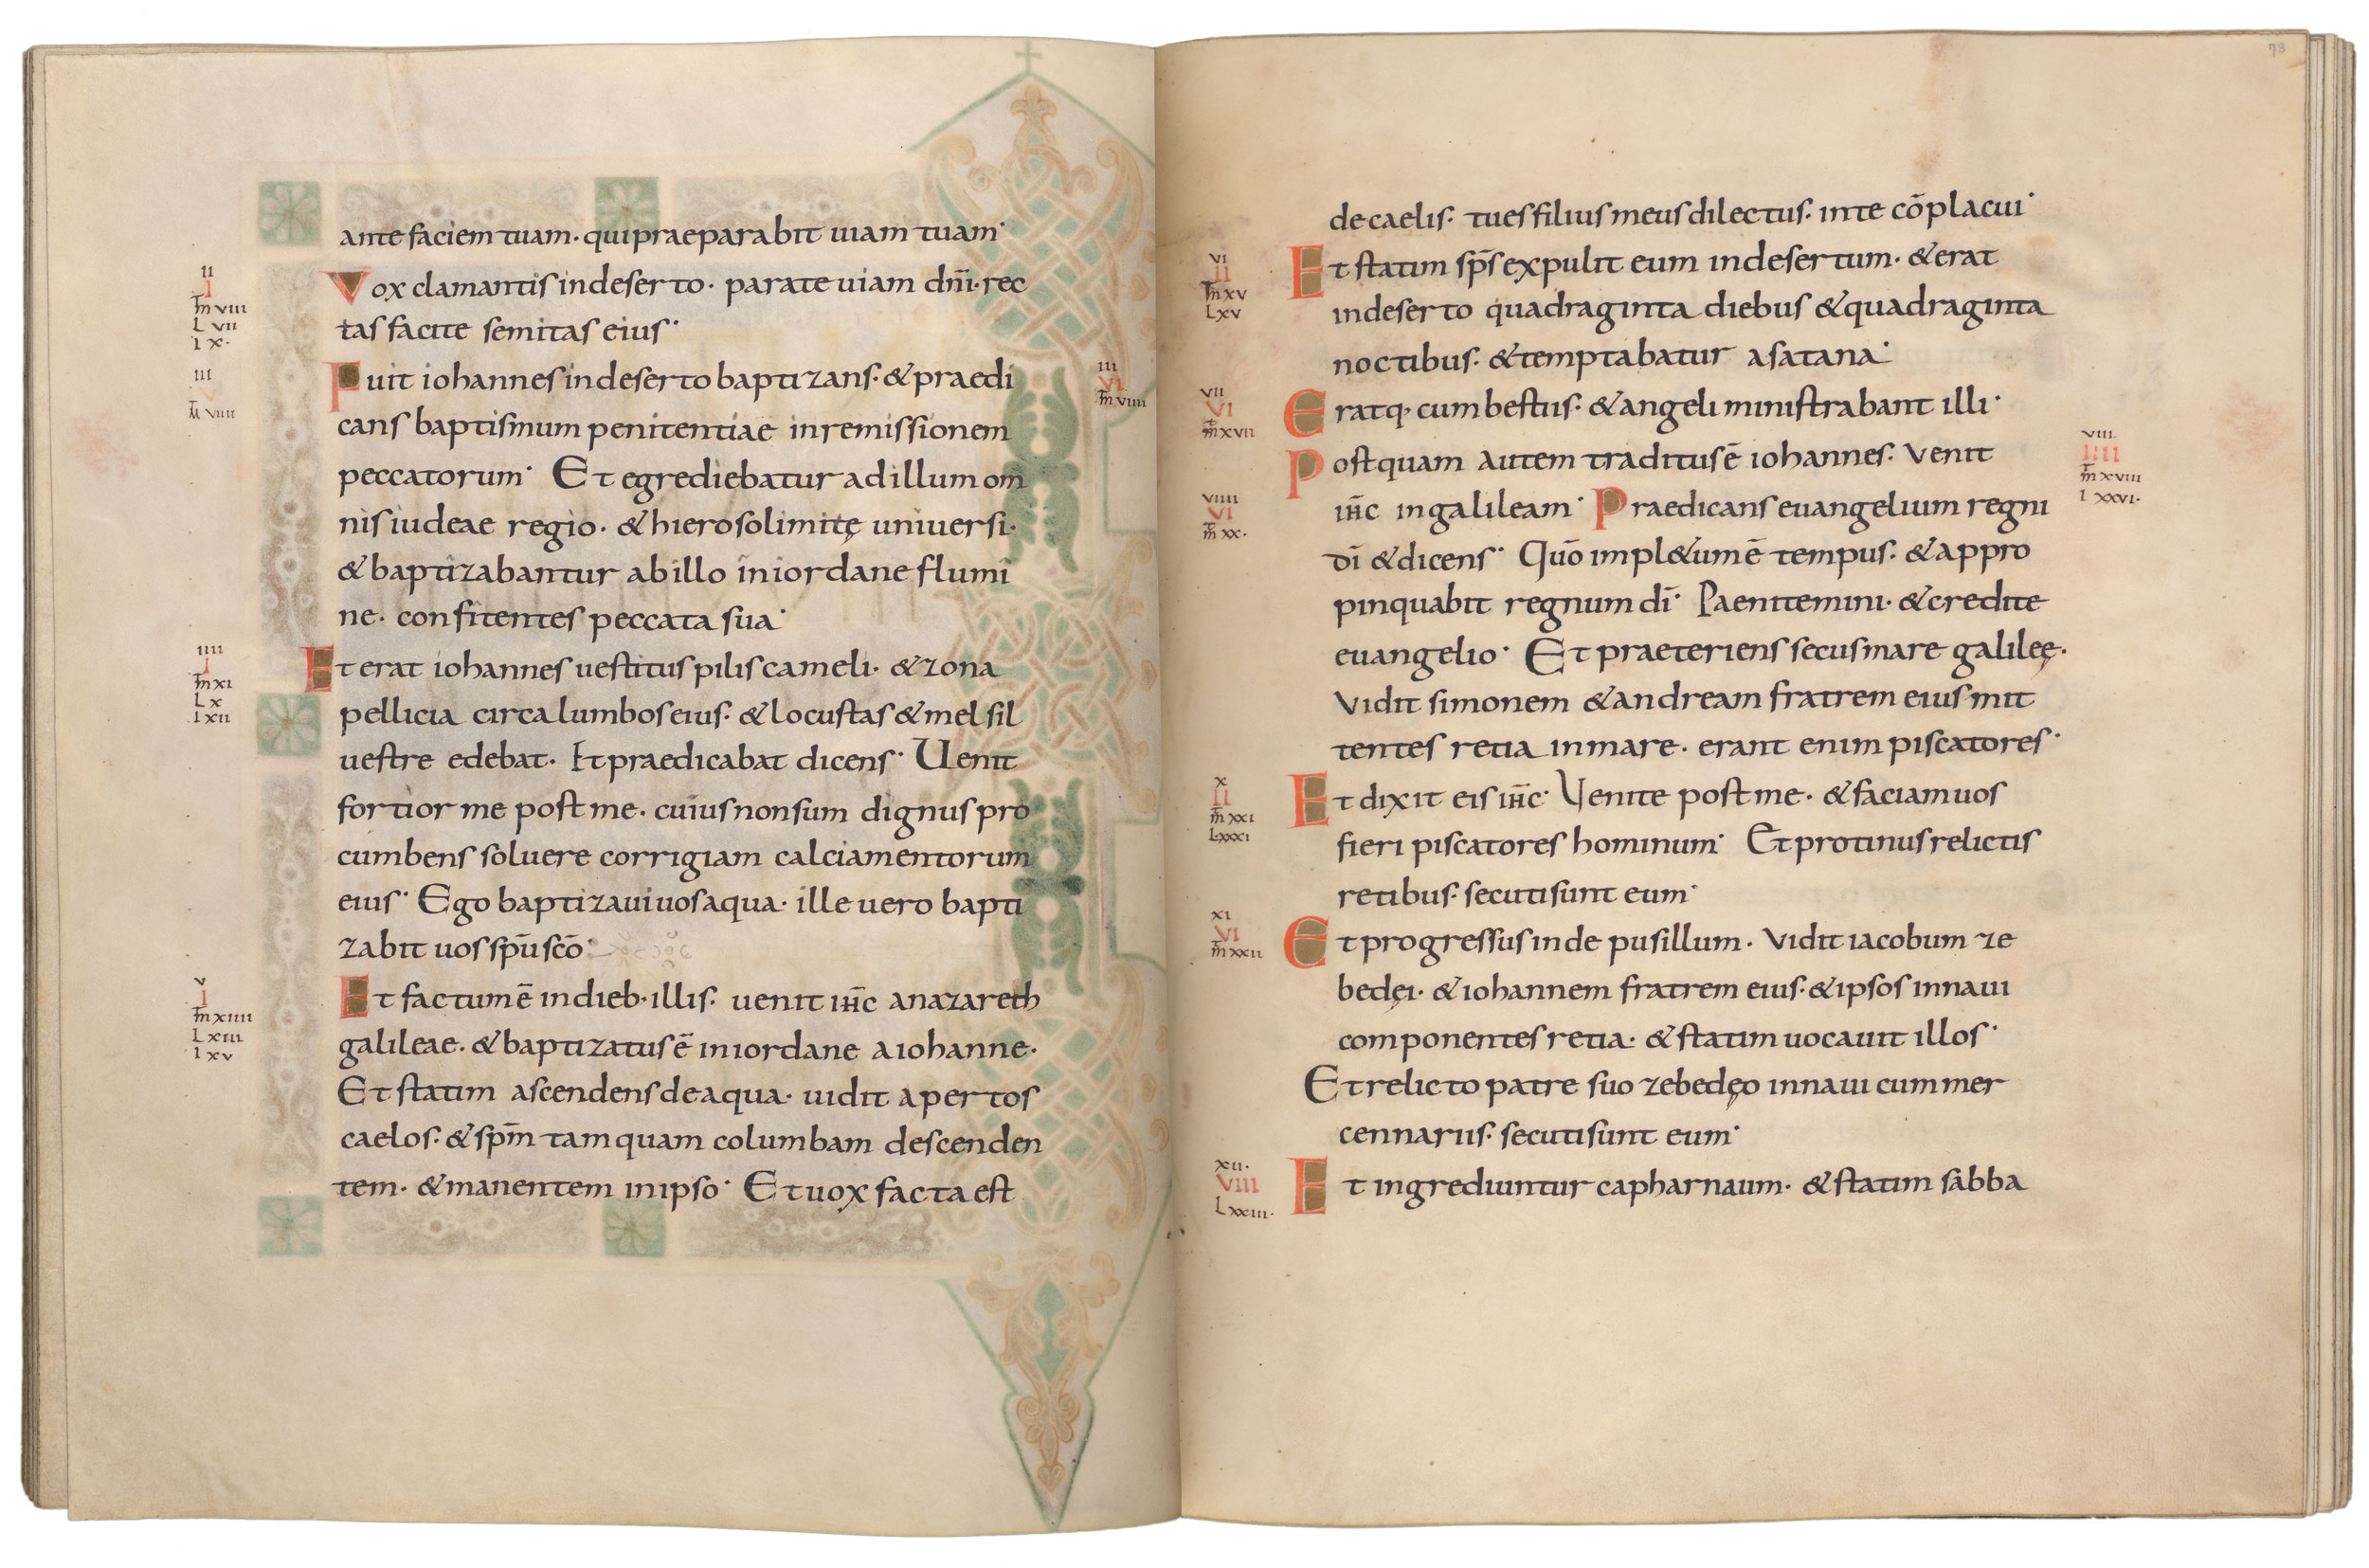 ante faciem tuam · qui praeparabit uiam tuam ·
II
I
m̄ VIII
L VII
I X ·
Vox clamantis in deserto · parate uiam dn̄i · rec
tas facite semitas eius ·
III
M̄ VIIII
Fuit iohannes in deserto baptizans · & praedi
III
VI
m̄ VIIII
cans baptismum penitentiae in remissionem
peccatorum · Et egrediebatur ad illum om
nis iudeae regio · & hierosolimitę universi ·
& baptizabantur ab illo in iordane flumi
ne · confitentes peccata sua ·
IIII
I
m̄ XI
L X
I XII
Et erat iohannes uestitus pilis cameli · & zona
pellicia circa lumbos eius · & locustas & mel sil
uestre edebat · Et praedicabat dicens · Uenit
fortior me post me · cuius non sum dignus pro
cumbens soluere corrigiam calciamentorum
eius · Ego baptizaui uos aqua · ille uero bapti
zabit uos spū scō ·
V
I
m̄ XIIII
L XIII
I XV
Et factum ē in dieb · illis · uenit ih̄c a nazareth
galileae · & baptizatus ē in iordane a iohanne ·
Et statim ascendens de aqua · uidit apertos
caelos · & spm̄ tamquam columbam descenden
tem · & manentem in ipso · Et uox facta est
73
de caelis · tu es filius meus dilectus · in te cōplacui ·
VI
II
m̄ XV
L XV
Et statim sp̄s expulit eum in desertum · & erat
in deserto quadraginta diebus & quadraginta
noctibus · & temptabatur a satana ·
VII
VI
m̄ XVII
Eratq; cum bestiis · & angeli ministrabant illi ·
Postquam autem traditus ē iohannes · Venit
VIII
IIII
m̄ XVIII
L XXVI ·
VIIII
VI
m̄ XX ·
ih̄c in galileam · Praedicans euangelium regni
dī & dicens · Quō impl&um ē tempus · & appro
pinquabit regnum dī · Paenitemini · & credite
euangelio · Et praeteriens secus mare galileę ·
Vidit simonem & andream fratrem eius mit
tentes retia in mare · erant enim piscatores ·
X
II
m̄ XXI
L XXXI
Et dixit eis ih̄c · Venite post me · & faciam uos
fieri piscatores hominum · Et protinus relictis
retibus · secuti sunt eum ·
XI
VI
m̄ XXII
Et progressus inde pusillum · Vidit iacobum ze
bedęi · & iohannem fratrem eius · & ipsos in naui
componentes retia · & statim uocauit illos ·
Et relicto patre suo zebedęo in naui cum mer
cennariis · secuti sunt eum ·
XII ·
VIII
L XXIII ·
Et ingrediuntur capharnaum · & statim sabba